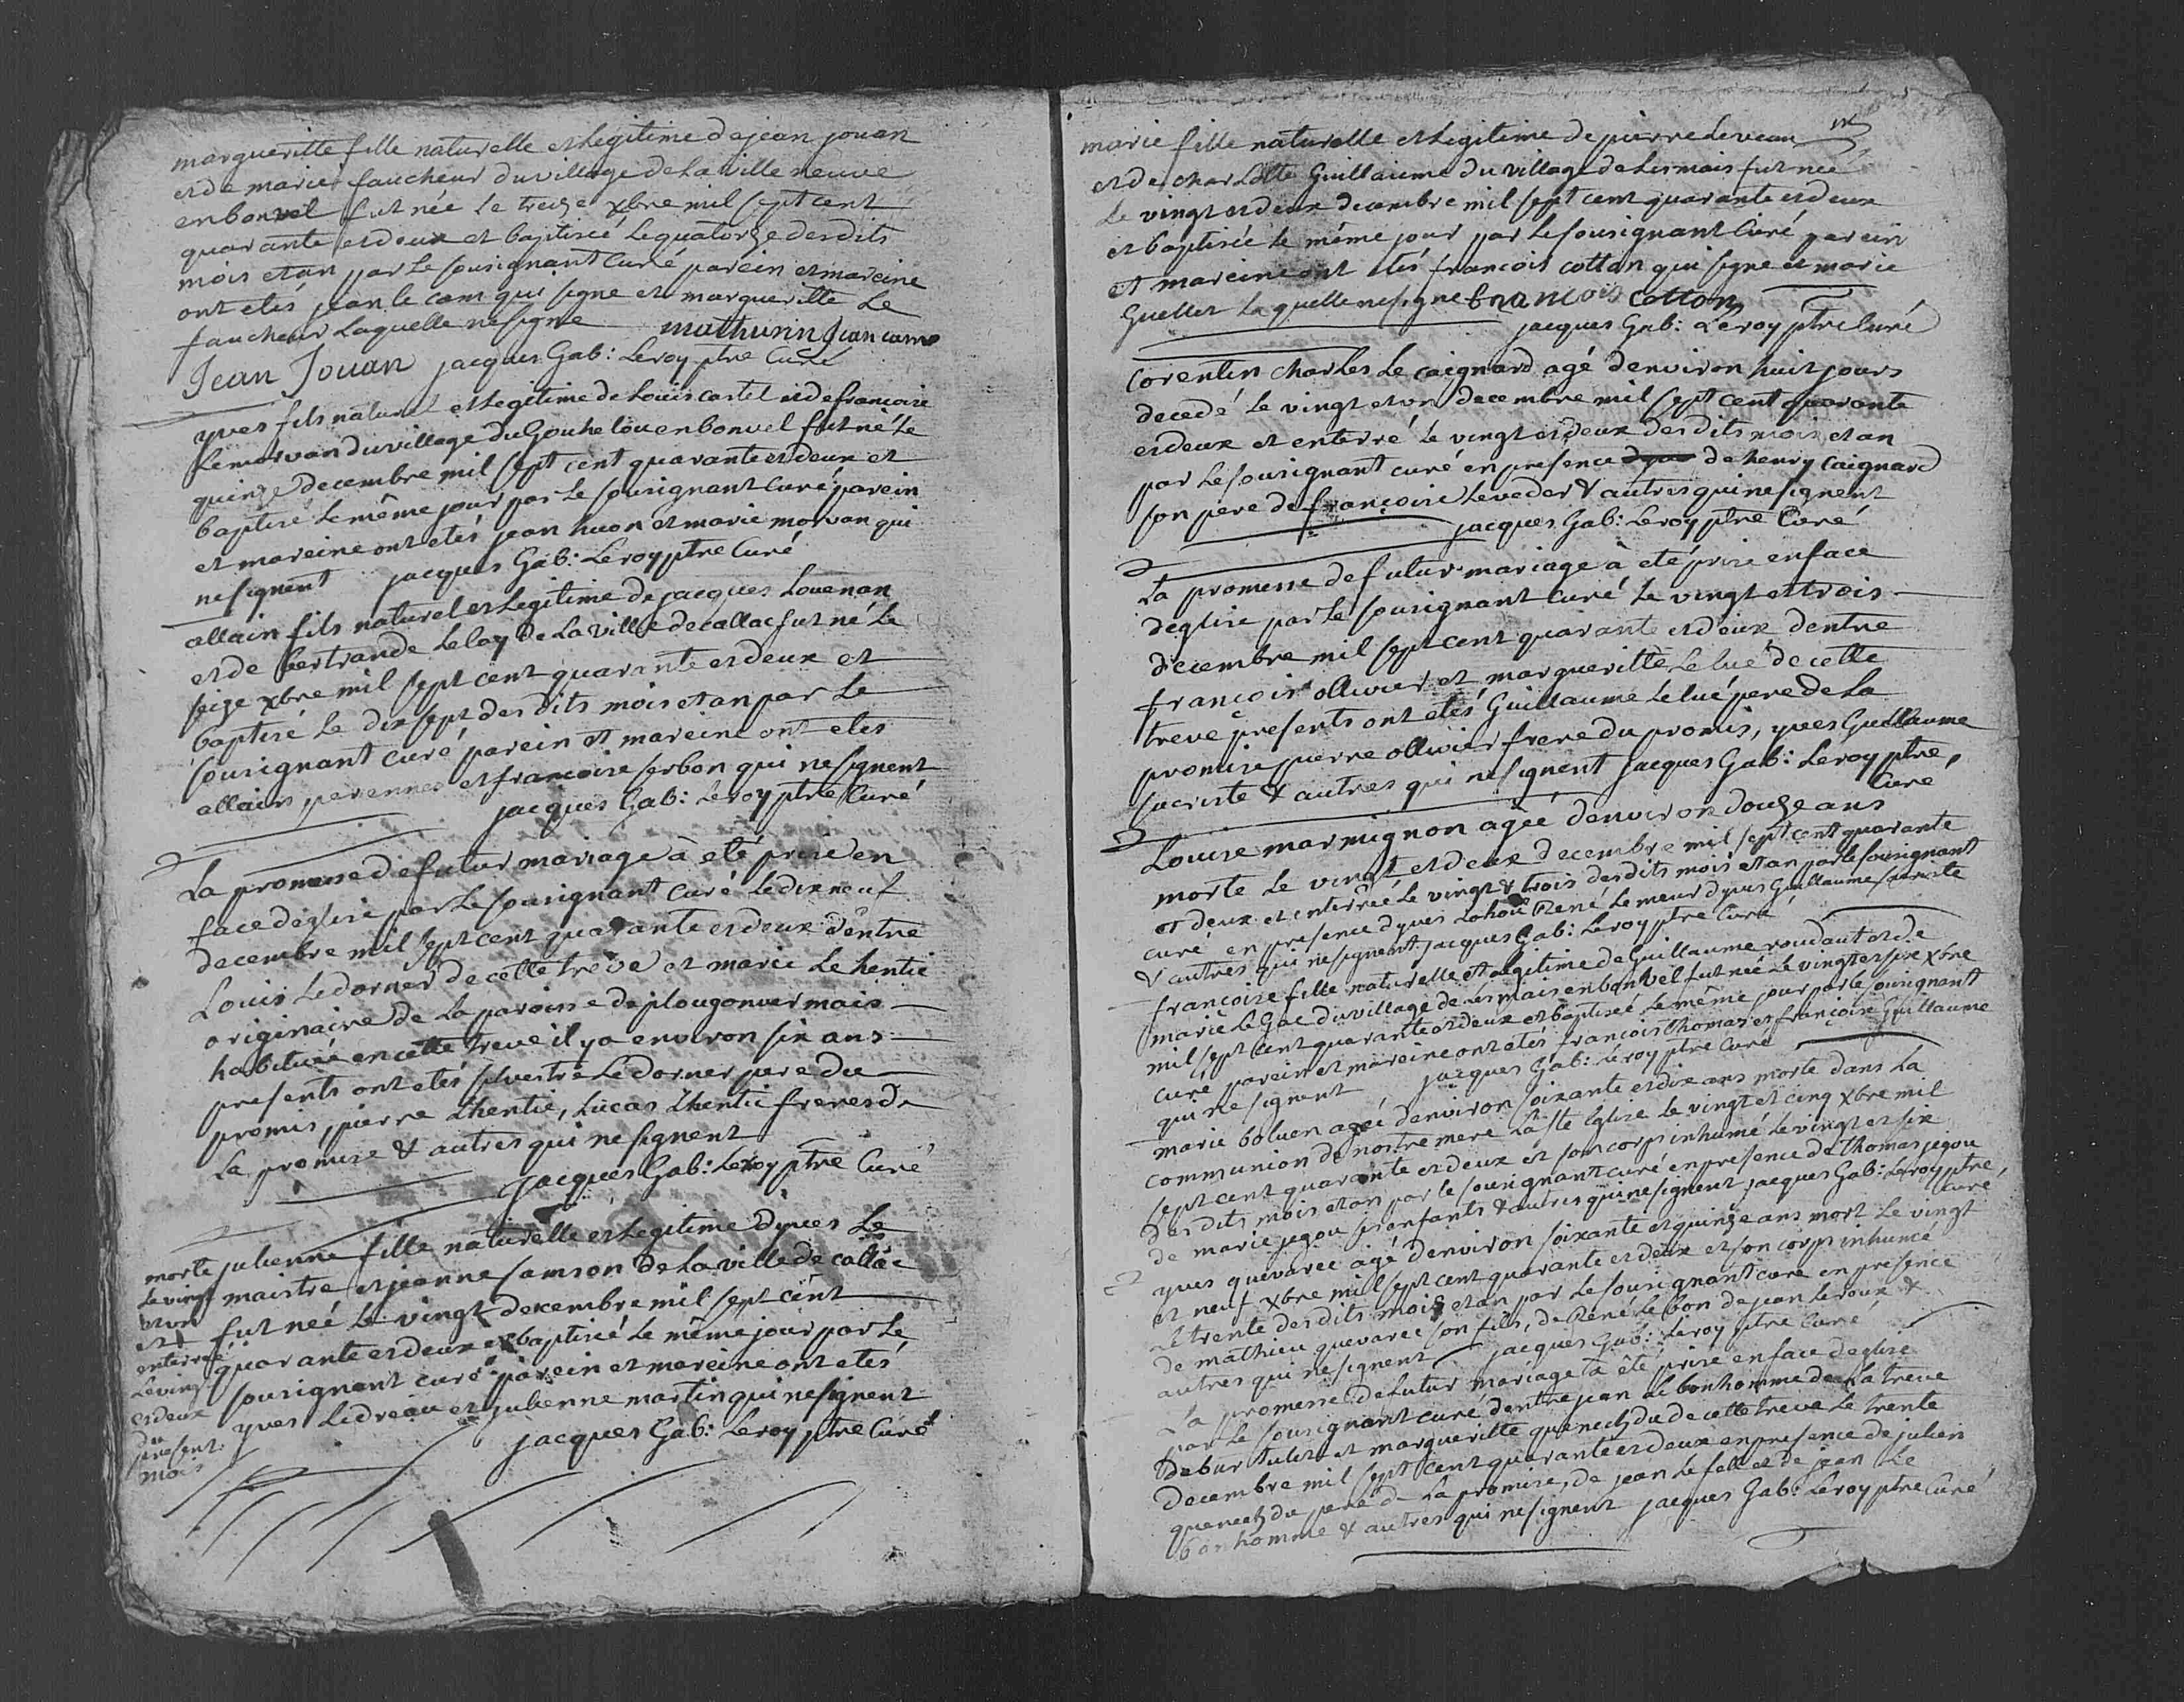 margueritte fille naturelle et Legitime de jean jouan
et de marie faucheur du village de La ville neuve
en bonvel fut née Le treize xbre mil sept cent
quarante et deux et baptiseé Le quatorze des dits
mois et an par Le sousignant Curé parein et mareine
ont etés jean le cam qui signe et margueritte Le
faucheur Laquelle ne signe mathurin Jean cam
Jean Jouan jacques Gab: Leroy ptre Curé
yves fils naturel et Legitime de Louis castel et de francoise
Le morvan du village du Gouhelou en bonvel fut né Le
quinze decembre mil sept cent quarante et deux et
baptisé Le même jour par Le sousignant Curé parein
et mareine ont etés jean huon et marie morvan qui
ne signent jacques Gab: Leroy ptre Curé
allain fils naturel et Legitime de jacques Louenan
et de bertrande Le lay de La ville de callac fut né Le
seize xbre mil sept cent quarante et deux et
baptisé Le dix sept des dits mois et an par Le
sousignant curé, parein et mareine ont etés
allain perennes et francoise serbon qui ne signent
jacques Gab: Leroy ptre Curé
La promesse de futur mariage à eté prise en
face d'eglise par Le sousignant Curé Le dix neuf
decembre mil sept cent quarante et deux d'entre
Louis Le dorner de cette treve et marie Le hentic
originaire de La paroisse de plougonver mais
habitueé en cette treve il y a environ six ans
presents ont etés silvestre Le dorner pere du
promis, pierre Lhentic, Lucas Lhentic freres de
La promise & autres qui ne signent
jacques Gab: Leroy ptre Curé
julienne fille naturelle et Legitime d'yves Le
maistre et jeanne samson de La ville de callac
fut neé Le vingt decembre mil sept cent
quarante et deux et baptiseé Le même jour par Le
sousignant curé parein et mareine ont etés
yves Le dreau et julienne martin qui ne signent
jacques Gab: Leroy ptre Curé
morte
Le vingt
et un
et
enterreé
Le vingt
et deux
du
present
mois
marie fille naturelle et Legitime de pierre Leveau
et de charLotte Guillaume du village de Lesmais fut neé
Le vingt et deux decembre mil sept cent quarante et deux
et baptiseé Le même jour par Le sousignant Curé parein
et mareine ont etés francois cotton qui signe et marie
Guellet Laquelle ne signe francois cotton
jacques Gab: Leroy ptre Curé
Corentin charLes Le caignard agé d'environ huit jours
decedé Le vingt et un decembre mil sept cent quarante
et deux et enterré Le vingt et deux des dits mois et an
par Le sousignant curé en presence de henry Caignard
son pere de françoise Leveder & autres qui ne signent
jacques Gab: Leroy ptre Curé
La promesse de futur mariage à eté prise en face
d'eglise par Le sousignant Curé Le vingt et trois
decembre mil sept cent quarante et deux d'entre
françois ollivier et margueritte Le lué de cette
treve presents ont etés Guillaume Le lué pere de La
promise pierre ollivier frere du promis, yves Guillaume
sacriste & autres qui ne signent jacques Gab: Leroy ptre,
Curé
Louise marmignon ageé d'environ douze ans
morte Le vingt et deux decembre mil sept cent quarante
et deux et enterreé Le vingt & trois des dits mois et an par le sousignant
curé en presence d'yves Lohou René Le meur d'yves Guillaume sacriste
& autres qui ne signent jacques Gab: Leroy ptre Curé
francoise fille naturelle et Legitime de Guillaume roudaut et de
marie Le Gac du village de Lesmais en bonvel fut neé Le vingt et six xbre
mil sept cent quarante et deux et baptiseé Le même jour par le sousignant
curé parein et mareine ont etés francois thomas et françoise Guillaume
qui ne signent jacques Gab: Leroy ptre Curé
marie boluen ageé d'environ soixante et dix ans morte dans La
communion de nostre mere La Ste Eglise Le vingt et cinq xbre mil
sept cent quarante et deux et son corps inhumé Le vingt et six
des dits mois et an par le sousignant curé en presence de thomas jegou
de marie jegou ses enfants & autres qui ne signent jacques Gab: Leroy ptre,
Curé
yves quevarec agé d'environ soixante et quinze ans mort Le vingt
et neuf xbre mil sept cent quarante et deux et son corps inhumé
Le trente des dits mois et an par Le sousignant curé en presence
de mathieu quevarec son fils, de René Le bon de jean Le roux &
autres qui ne signent jacques Gab: Leroy ptre Curé
La promesse de futur mariage à êté prise en face d'eglise
par Le sousignant curé d'entre jean Le bonhomme de La treve
de burtulet et margueritte quenechdu de cette treve Le trente
decembre mil sept cent quarante et deux en presence de julien
quenechdu pere de La promise, de jean Le fell et de jean Le
bonhomme & autres qui ne signent jacques Gab: Leroy ptre Curé